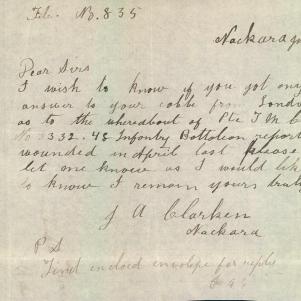 File B.835
Nackara
Dear Sirs
I wish to know if you got any
answer to your cable from Lond
as to the whereabout of Pte T M C
No 3332. 48 Infantry Battoleon report
wounded in April last please
let one know as I would lik
to know I remain yours trul
J A Clarken
Nackara
P S
Find enclosed envelope for reply